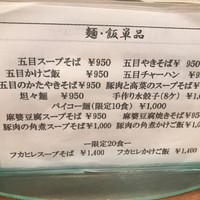 麺・飯単品
五目スープそば ¥950 五目やきそば ¥950
五目かけご飯 ¥950 五目チャーハン ¥950
五目のかたやきそば ¥950 豚肉と高菜のスープそば ¥950
坦々麺 ¥950 手作り水餃子(8ケ) ¥1,000
パイコー麺(限定10食) ¥1,000
麻婆豆腐スープそば ¥950 麻婆豆腐焼きそば ¥950
豚肉の角煮スープそば ¥1,000 豚肉の角煮かけご飯 ¥1,000
ー限定20食ー
フカヒレスープそば ¥1,400 フカヒレかけご飯 ¥1,400